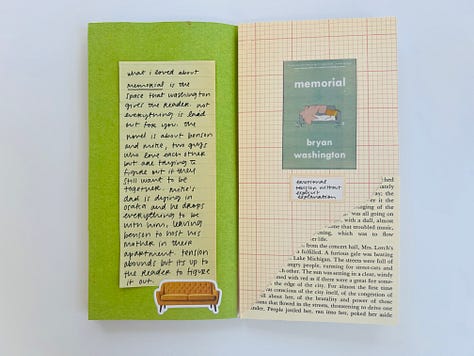 what i loved about
memorial is the
space that washington
gives the reader. not
everything is laid
out for you. the
novel is about benson
and mike, two guys
who love each other
but are trying to
figure out if they
still want to be
together. mike's
dad is dying in
osaka and he drops
everything to be
with him, leaving
benson to host his
mother in their
apartment. tension
abounds but its up to
the reader to figure
it out.
memorial
bryan
washington
emotional
tension without
explicit
explanation
hed
utely
ay; the
er is the
nging of the
was all going on
with a dull, almost
one that troubled music,
oning, which was to flow
her life.
from the concert hall, Mrs. Lorch's
fulfilled. A furious gale was beating
Lake Michigan. The streets were full of
angry people, running for street-cars and
h other. The sun was setting in a clear, windy
d with red as if there were a great fire some-
the edge of the city. For almost the first time
as conscious of the city itself, of the congestion of
all about her, of the brutality and power of those
ms that flowed in the streets, threatening to drive one
nder. People jostled her, ran into her, poked her aside